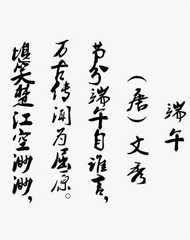 端午
(唐)文秀
节分端午自谁言，
万古传闻为屈原。
堪笑楚江空渺渺，